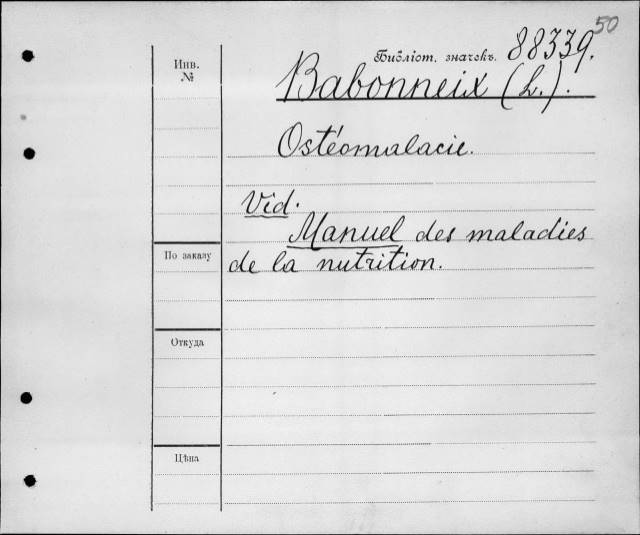 50
Библіот. значекъ. 88339.
Инв.
№
Babonneix (L.).
Ostéomalacie.
Vid.
Manuel des maladies
de la nutrition.
По заказу
Откуда
Цѣна